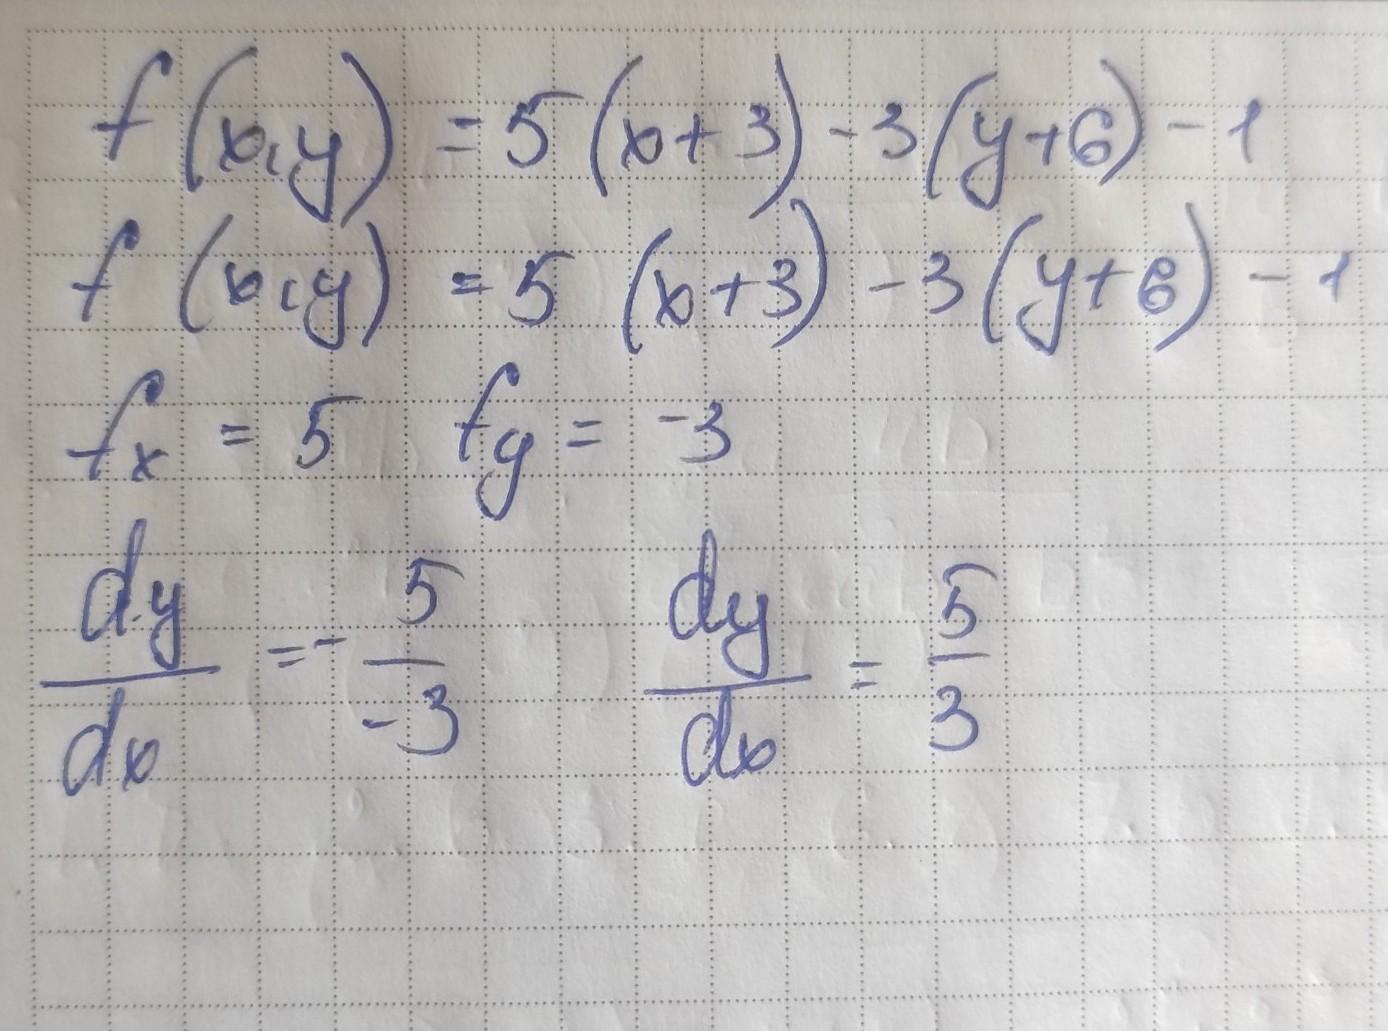 f(x,y) = 5(x+3) - 3(y+6) - 1
f(x,y) = 5(x+3) - 3(y+6) - 1
fx = 5 fy = -3
dy/dx = - 5/-3 dy/dx = 5/3